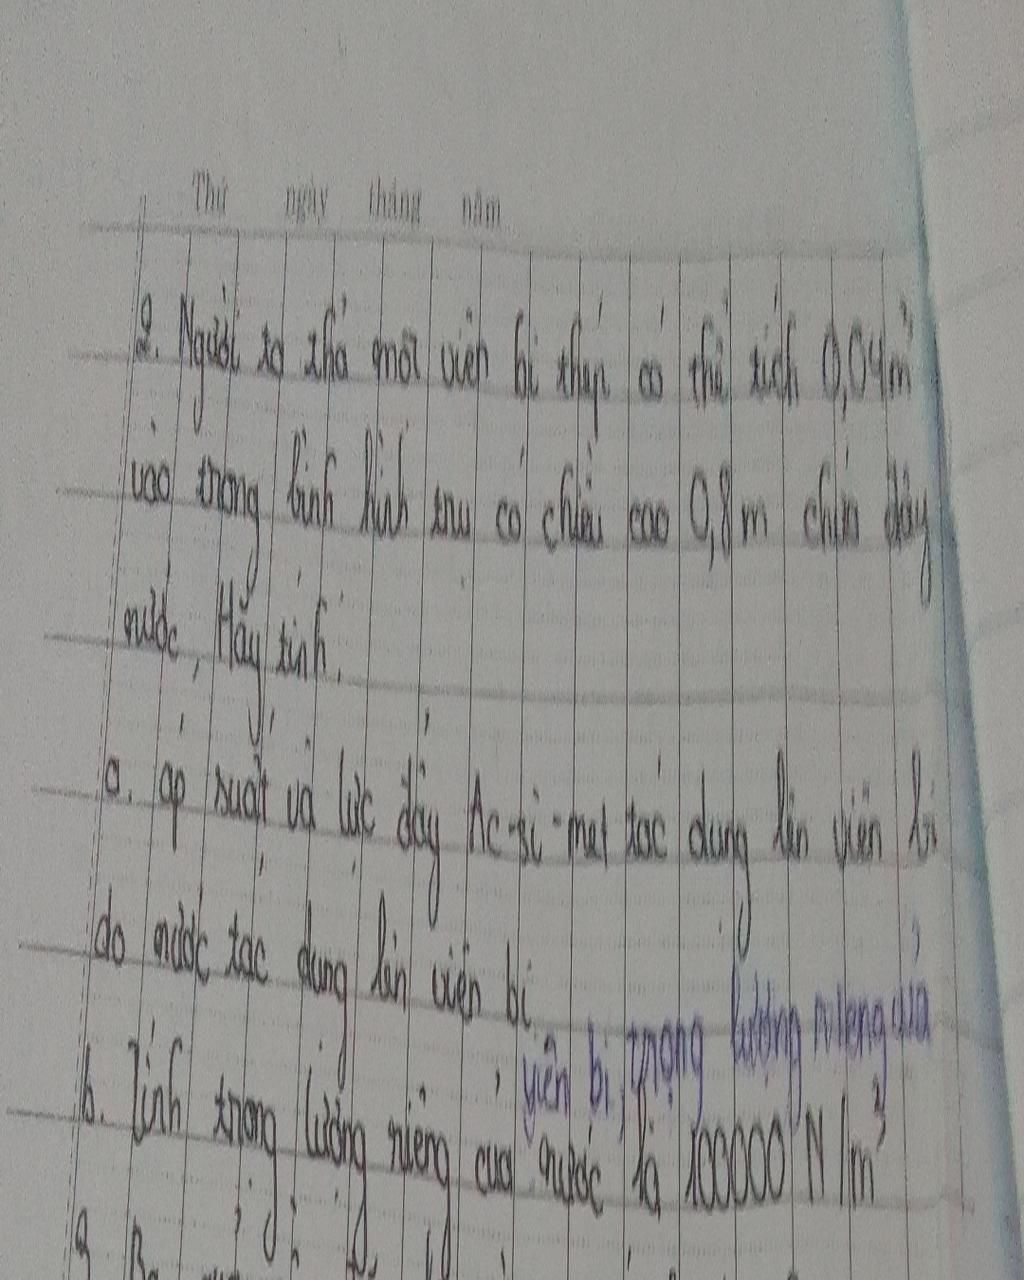 Thứ ngày tháng năm
2. Người ta thả một viên bi thép có thể tích 0,04m³
vào trong bình hình trụ có chiều cao 0,8m chứa đầy
nước, Hãy tính.
a. áp suất và lực đẩy Ac-si-met tác dụng lên viên bi
do nước tác dụng lên viên bi
viên bi, trọng lượng riêng của
b. Tính trọng lượng riêng của nước là 100000 N/m³